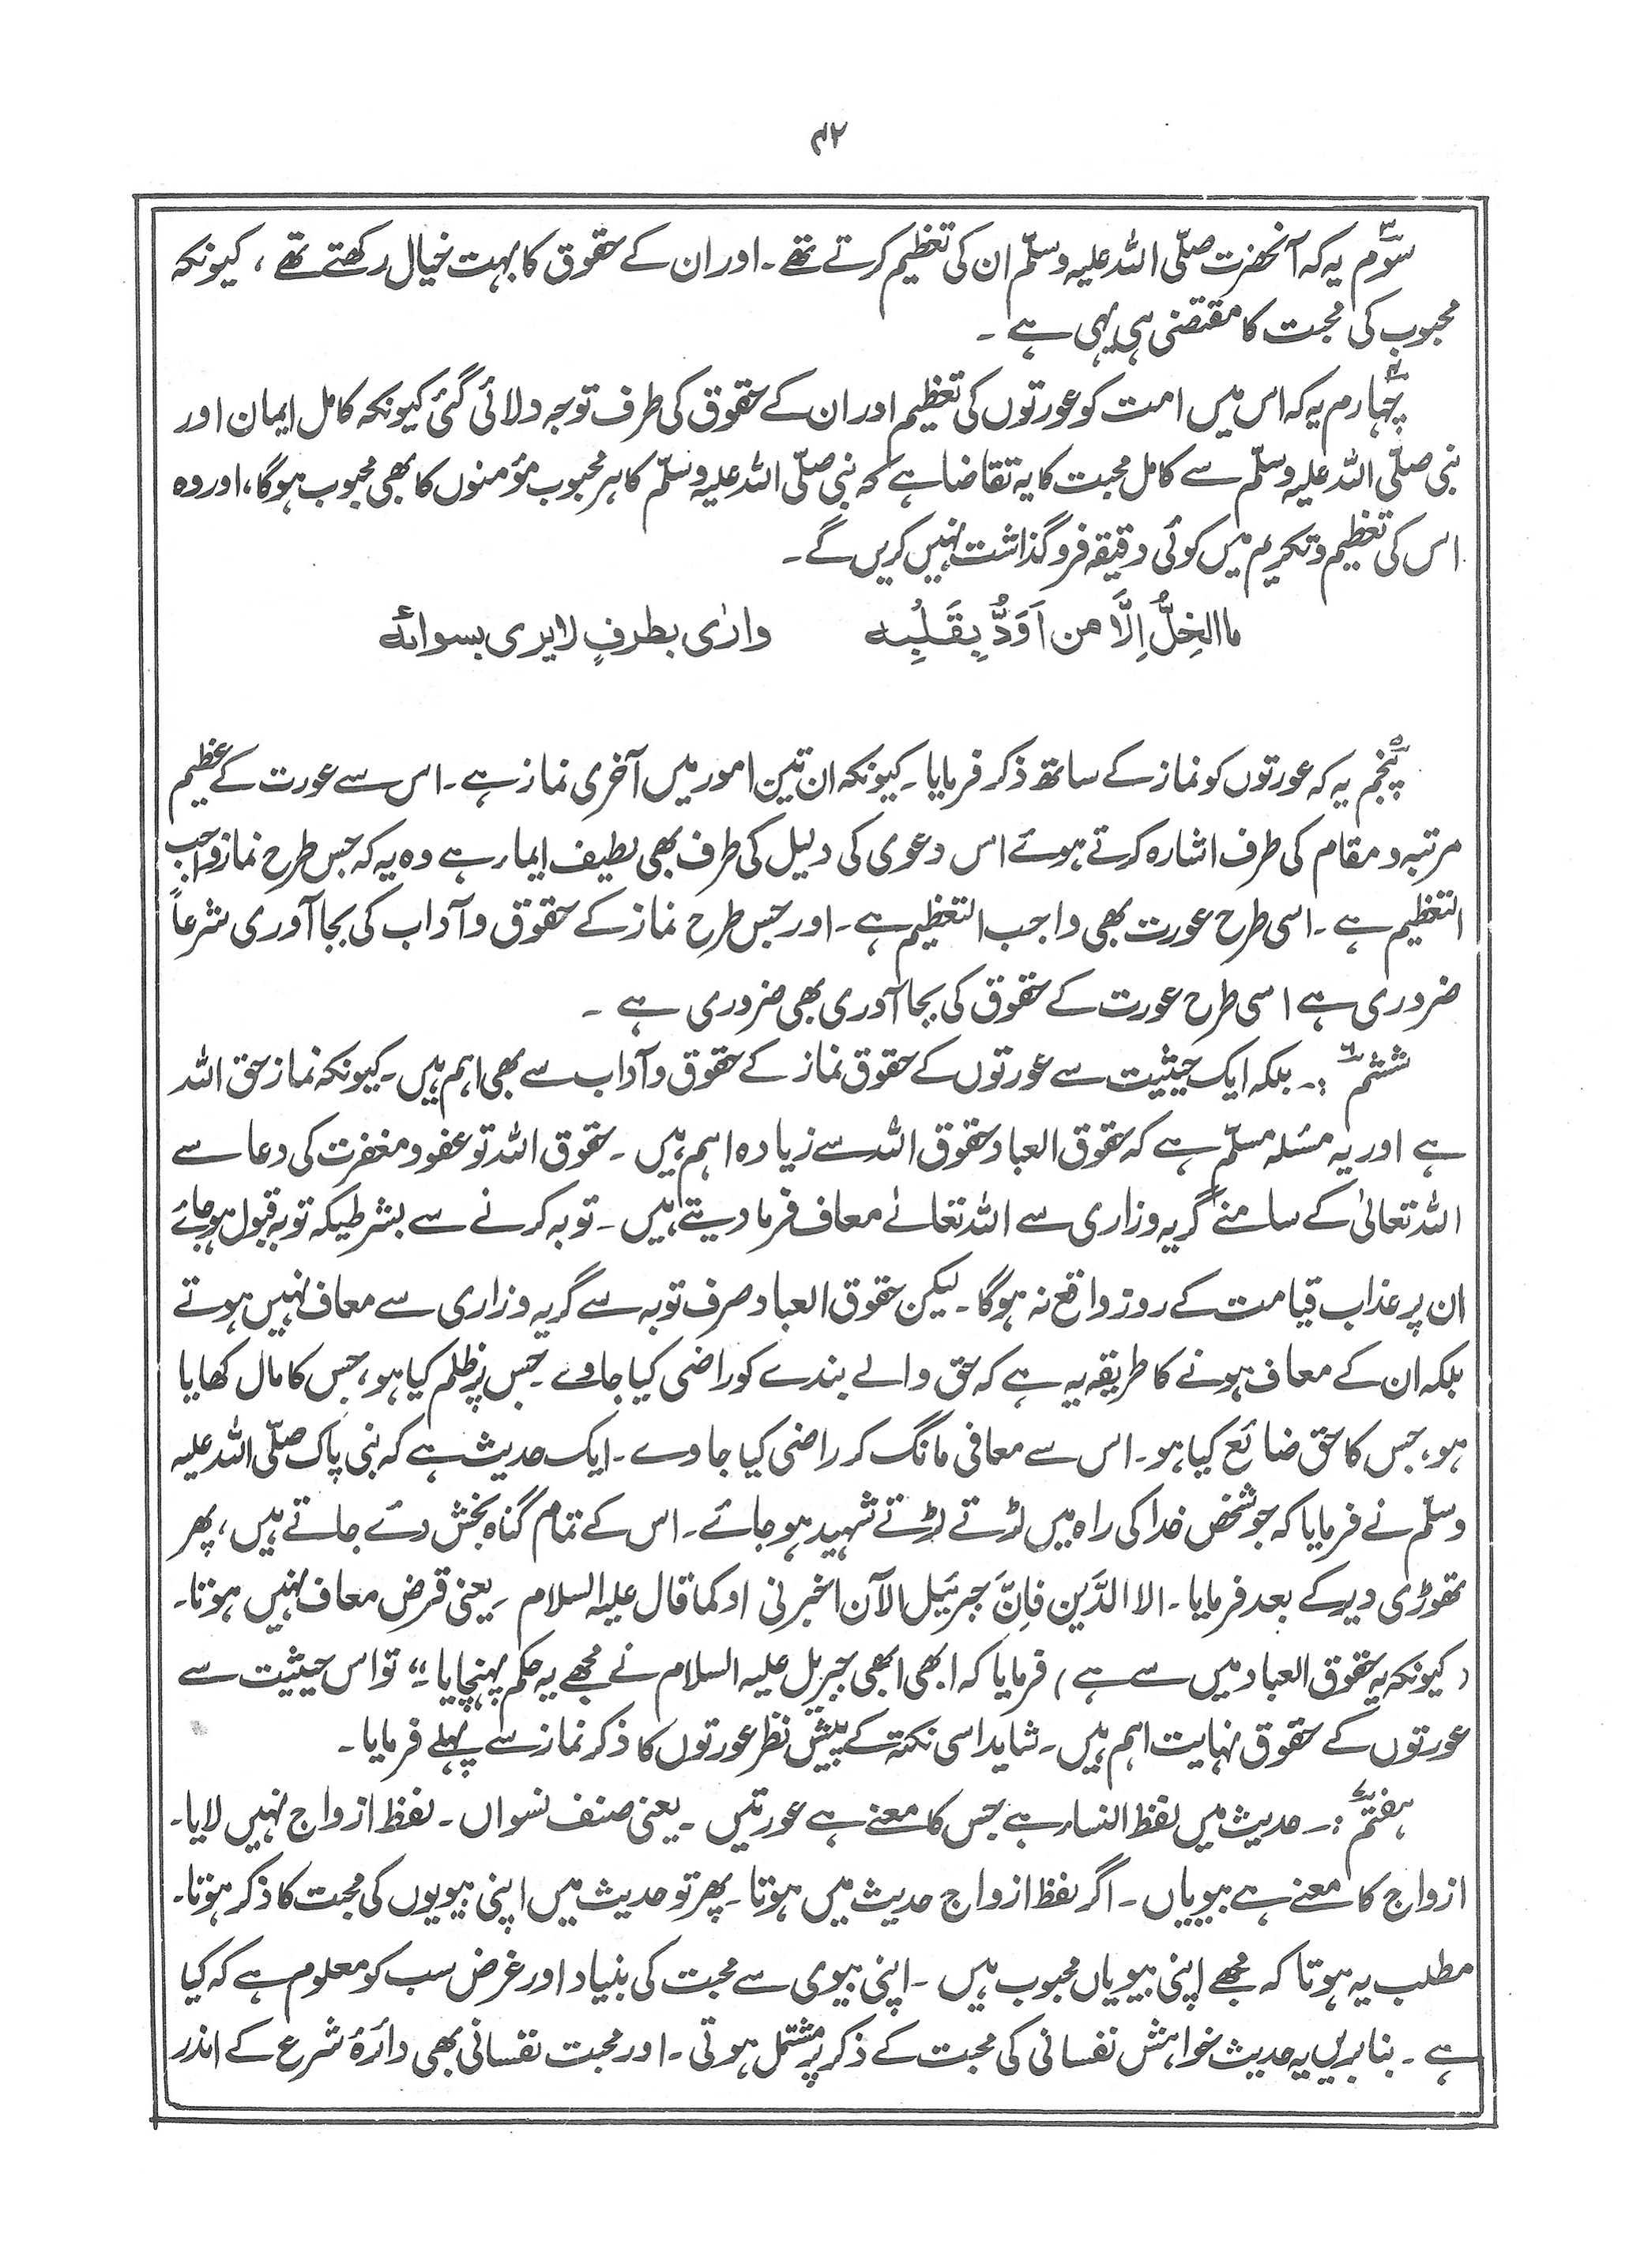 ۴۲
سوّم یہ کہ آنحضرت صلّی اللہ علیہ وسلّم ان کی تعظیم کرتے تھے۔ اور ان کے حقوق کا بہت خیال رکھتے تھے ، کیونکہ
محبوب کی محبت کا مقتضٰی ہی یہی ہے ۔
چہارم یہ کہ اس میں امت کو عورتوں کی تعظیم اور ان کے حقوق کی طرف توجہ دلائی گئی کیونکہ کامل ایمان اور
نبی صلّی اللہ علیہ وسلّم سے کامل محبت کا یہ تقاضا ہے کہ نبی صلّی اللہ علیہ وسلّم کا ہر محبوب مؤمنوں کا بھی محبوب ہوگا، اور وہ
اس کی تعظیم و تکریم میں کوئی دقیقہ فروگذاشت نہیں کریں گے۔
ما الخِلُّ اِلَّا من اَوَدُّ بِقَلْبِہ     وارٰی بطرفٍ لا یری بسوائہ
پنجم یہ کہ عورتوں کو نماز کے ساتھ ذکر فرمایا۔ کیونکہ ان تین امور میں آخری نماز ہے۔ اس سے عورت کے عظیم
مرتبہ و مقام کی طرف اشارہ کرتے ہوئے اس دعوی کی دلیل کی طرف بھی لطیف ایماء ہے وہ یہ کہ جس طرح نماز واجب
التعظیم ہے ۔ اسی طرح عورت بھی واجب التعظیم ہے۔ اور جس طرح نماز کے حقوق و آداب کی بجا آوری شرعاً
ضروری ہے اسی طرح عورت کے حقوق کی بجا آوری بھی ضروری ہے ۔
ششم :۔ بلکہ ایک حیثیت سے عورتوں کے حقوق نماز کے حقوق و آداب سے بھی اہم ہیں۔ کیونکہ نماز حق اللہ
ہے اور یہ مسئلہ مسلّم ہے کہ حقوق العباد حقوق اللہ سے زیادہ اہم ہیں ۔ حقوق اللہ تو عفو و مغفرت کی دعا سے
اللہ تعالیٰ کے سامنے گریہ و زاری سے اللہ تعالےٰ معاف فرما دیتے ہیں ۔ توبہ کرنے سے بشرطیکہ توبہ قبول ہو جائے
ان پر عذاب قیامت کے روز واقع نہ ہوگا۔ لیکن حقوق العباد صرف توبہ سے گریہ و زاری سے معاف نہیں ہوتے
بلکہ ان کے معاف ہونے کا طریقہ یہ ہے کہ حق والے بندے کو راضی کیا جاوے جس پر ظلم کیا ہو، جس کا مال کھایا
ہو، جس کا حق ضائع کیا ہو۔ اس سے معافی مانگ کر راضی کیا جاوے ۔ ایک حدیث ہے کہ نبی پاک صلّی اللہ علیہ
وسلّم نے فرمایا کہ جو شخص خدا کی راہ میں لڑتے لڑتے شہید ہو جائے ۔ اس کے تمام گناہ بخش دئے جاتے ہیں، پھر
تھوڑی دیر کے بعد فرمایا ۔ الا الدَّین فاِنَّ جبرئیل الآن اخبرنی او کما قال علیہ السلام ۔ یعنی قرض معاف نہیں ہوتا۔
( کیونکہ یہ حقوق العباد میں سے ہے ) فرمایا کہ ابھی ابھی جبریل علیہ السلام نے مجھے یہ حکم پہنچایا ۔“ تو اس حیثیت سے
عورتوں کے حقوق نہایت اہم ہیں۔ شاید اسی نکتہ کے پیش نظر عورتوں کا ذکر نماز سے پہلے فرمایا ۔
ہفتم :۔ حدیث میں لفظ النساء ہے جس کا معنے ہے عورتیں ۔ یعنی صنف نسواں ۔ لفظ ازواج نہیں لایا۔
ازواج کا معنے ہے بیویاں ۔ اگر لفظ ازواج حدیث میں ہوتا ۔ پھر تو حدیث میں اپنی بیویوں کی محبت کا ذکر ہوتا۔
مطلب یہ ہوتا کہ مجھے اپنی بیویاں محبوب ہیں ۔ اپنی بیوی سے محبت کی بنیاد اور غرض سب کو معلوم ہے کہ کیا
ہے ۔ بنا بریں یہ حدیث خواہش نفسانی کی محبت کے ذکر پر مشتمل ہوتی ۔ اور محبت نفسانی بھی دائرۂ شرع کے اندر